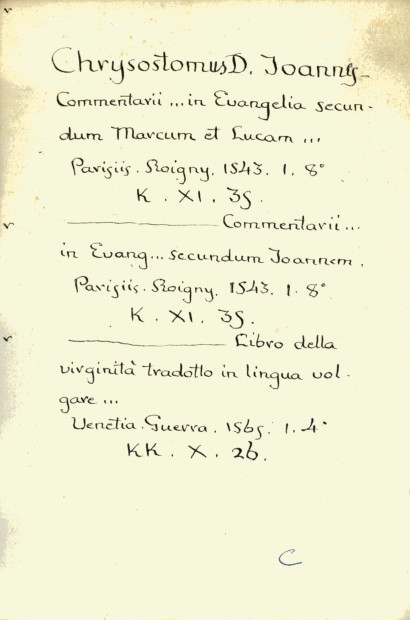 Chrysostomus D. Joannes
Commentarii ... in Evangelia secun-
dum Marcum et Lucam ...
Parisiis. Roigny. 1543. 1. 8°
K. XI. 35.
Commentarii ...
in Evang... secundum Joannem.
Parisiis. Roigny. 1543. 1. 8°
K. XI. 35.
Libro della
virginità tradotto in lingua vol-
gare ...
Venetia. Guerra. 1565. 1. 4°
KK. X. 26.
C